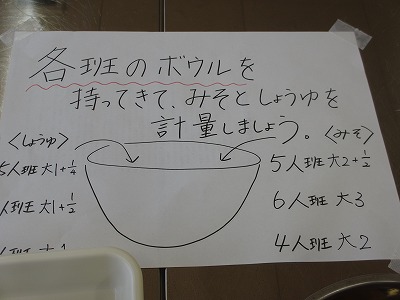 各班のボウルを
持ってきて、みそとしょうゆを
計量しましょう。
〈しょうゆ〉
5人班 大1+1/4
人班 大1+1/2
〈みそ〉
5人班 大2+1/2
6人班 大3
4人班 大2